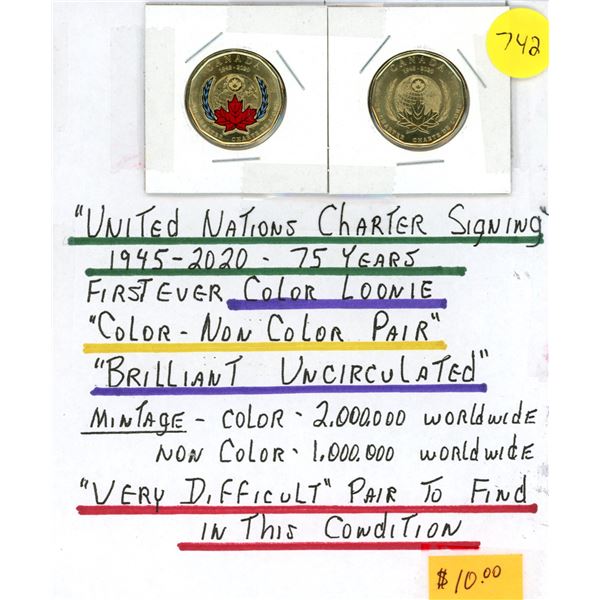 742
CANADA
1945-2020
CANADA
1945-2020
"UNITED NATIONS CHARTER SIGNING"
1945-2020 - 75 YEARS
FIRST EVER COLOR LOONIE
"COLOR - NON COLOR PAIR"
"BRILLIANT UNCIRCULATED"
MINTAGE - COLOR - 2,000,000 WORLDWIDE
NON COLOR - 1,000,000 WORLDWIDE
"VERY DIFFICULT" PAIR TO FIND
IN THIS CONDITION
$10.00